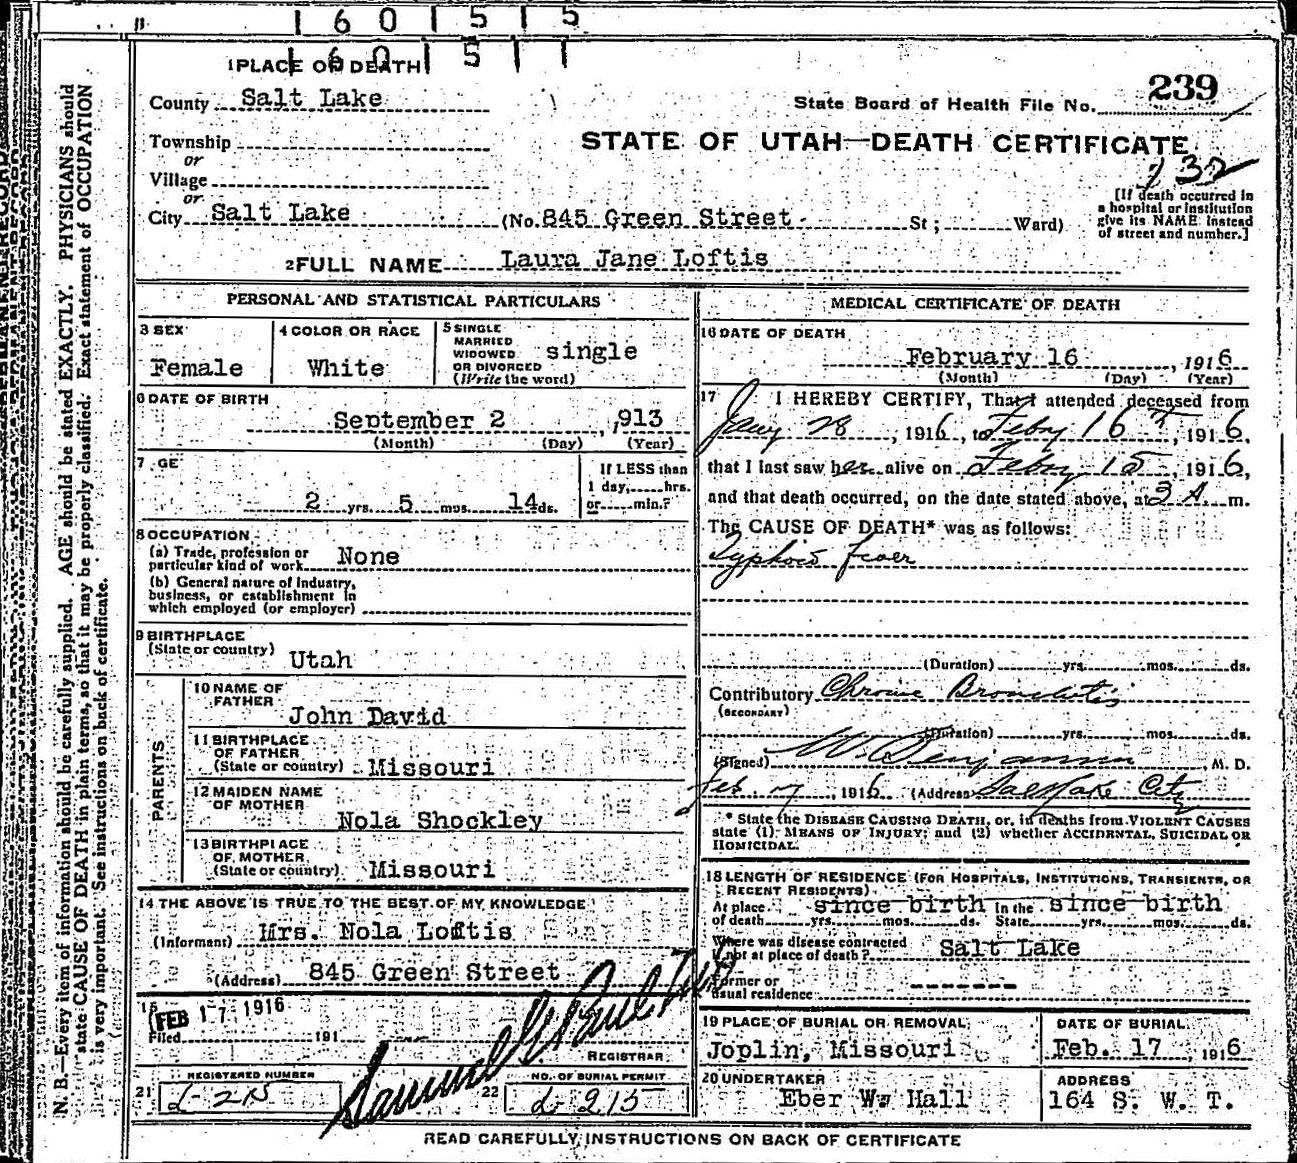 1 6 0 1 5 1 5
1 6 0 1 5 1 1
1 PLACE OF DEATH
County Salt Lake
State Board of Health File No. 239
Township
or
STATE OF UTAH—DEATH CERTIFICATE
232
Village
or
City Salt Lake (No. 845 Green Street St; Ward)
[If death occurred in
a hospital or institution
give its NAME instead
of street and number.]
2 FULL NAME Laura Jane Loftis
PERSONAL AND STATISTICAL PARTICULARS
3 SEX
Female
4 COLOR OR RACE
White
5 SINGLE
MARRIED
WIDOWED
OR DIVORCED
(Write the word)
single
6 DATE OF BIRTH
September 2, 1913
(Month) (Day) (Year)
7 GE
2 yrs. 5 mos. 14 ds.
If LESS than
1 day, hrs.
or min.?
8 OCCUPATION
(a) Trade, profession or
particular kind of work None
(b) General nature of industry,
business, or establishment in
which employed (or employer)
9 BIRTHPLACE
(State or country)
Utah
PARENTS
10 NAME OF
FATHER
John David
11 BIRTHPLACE
OF FATHER
(State or country) Missouri
12 MAIDEN NAME
OF MOTHER
Nola Shockley
13 BIRTHPLACE
OF MOTHER
(State or country) Missouri
14 THE ABOVE IS TRUE TO THE BEST OF MY KNOWLEDGE
(Informant) Mrs. Nola Loftis
(Address) 845 Green Street
15
FEB 17 1916
Filed 191
Samuel G. Paul
REGISTRAR
REGISTERED NUMBER
21 L-215
NO. OF BURIAL PERMIT
22 L-215
MEDICAL CERTIFICATE OF DEATH
16 DATE OF DEATH
February 16, 1916
(Month) (Day) (Year)
17 I HEREBY CERTIFY, That I attended deceased from
Jany 28, 1916, to Feby 16th, 1916,
that I last saw her alive on Feby 15, 1916,
and that death occurred, on the date stated above, at 3 A m.
The CAUSE OF DEATH* was as follows:
Typhoid Fever
(Duration) yrs. mos. ds.
Contributory Chronic Bronchitis
(SECONDARY)
(Duration) yrs. mos. ds.
(Signed) W. Benjamin, M. D.
Feb 17, 1916 (Address) Salt Lake City
* State the DISEASE CAUSING DEATH, or, in deaths from VIOLENT CAUSES
state (1) MEANS OF INJURY; and (2) whether ACCIDENTAL, SUICIDAL OR
HOMICIDAL.
18 LENGTH OF RESIDENCE (FOR HOSPITALS, INSTITUTIONS, TRANSIENTS, OR
RECENT RESIDENTS)
At place since birth In the since birth
of death yrs. mos. ds. State yrs. mos. ds.
Where was disease contracted
if not at place of death? Salt Lake
Former or
usual residence -------
19 PLACE OF BURIAL OR REMOVAL
Joplin, Missouri
DATE OF BURIAL
Feb. 17, 1916
20 UNDERTAKER
Eber W. Hall
ADDRESS
164 S. W. T.
READ CAREFULLY INSTRUCTIONS ON BACK OF CERTIFICATE
N. B.—Every item of information should be carefully supplied. AGE should be stated EXACTLY. PHYSICIANS should
state CAUSE OF DEATH in plain terms, so that it may be properly classified. Exact statement of OCCUPATION
is very important. See instructions on back of certificate.